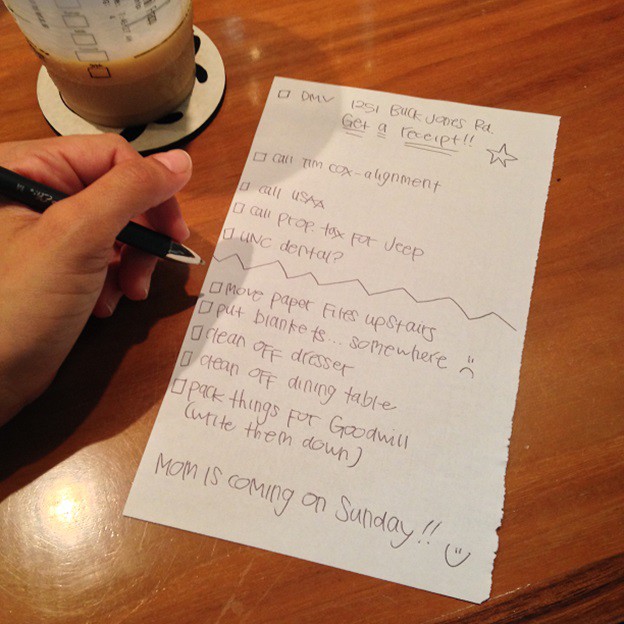 DMV 1251 Buck Jones Rd.
Get a receipt!!
call Tim Cox-alignment
call USAA
call prop. tax for Jeep
UNC dental?
move paper files upstairs
put blankets... somewhere :(
clean off dresser
clean off dining table
pack things for Goodwill
(write them down)
Mom is coming on Sunday!! :)